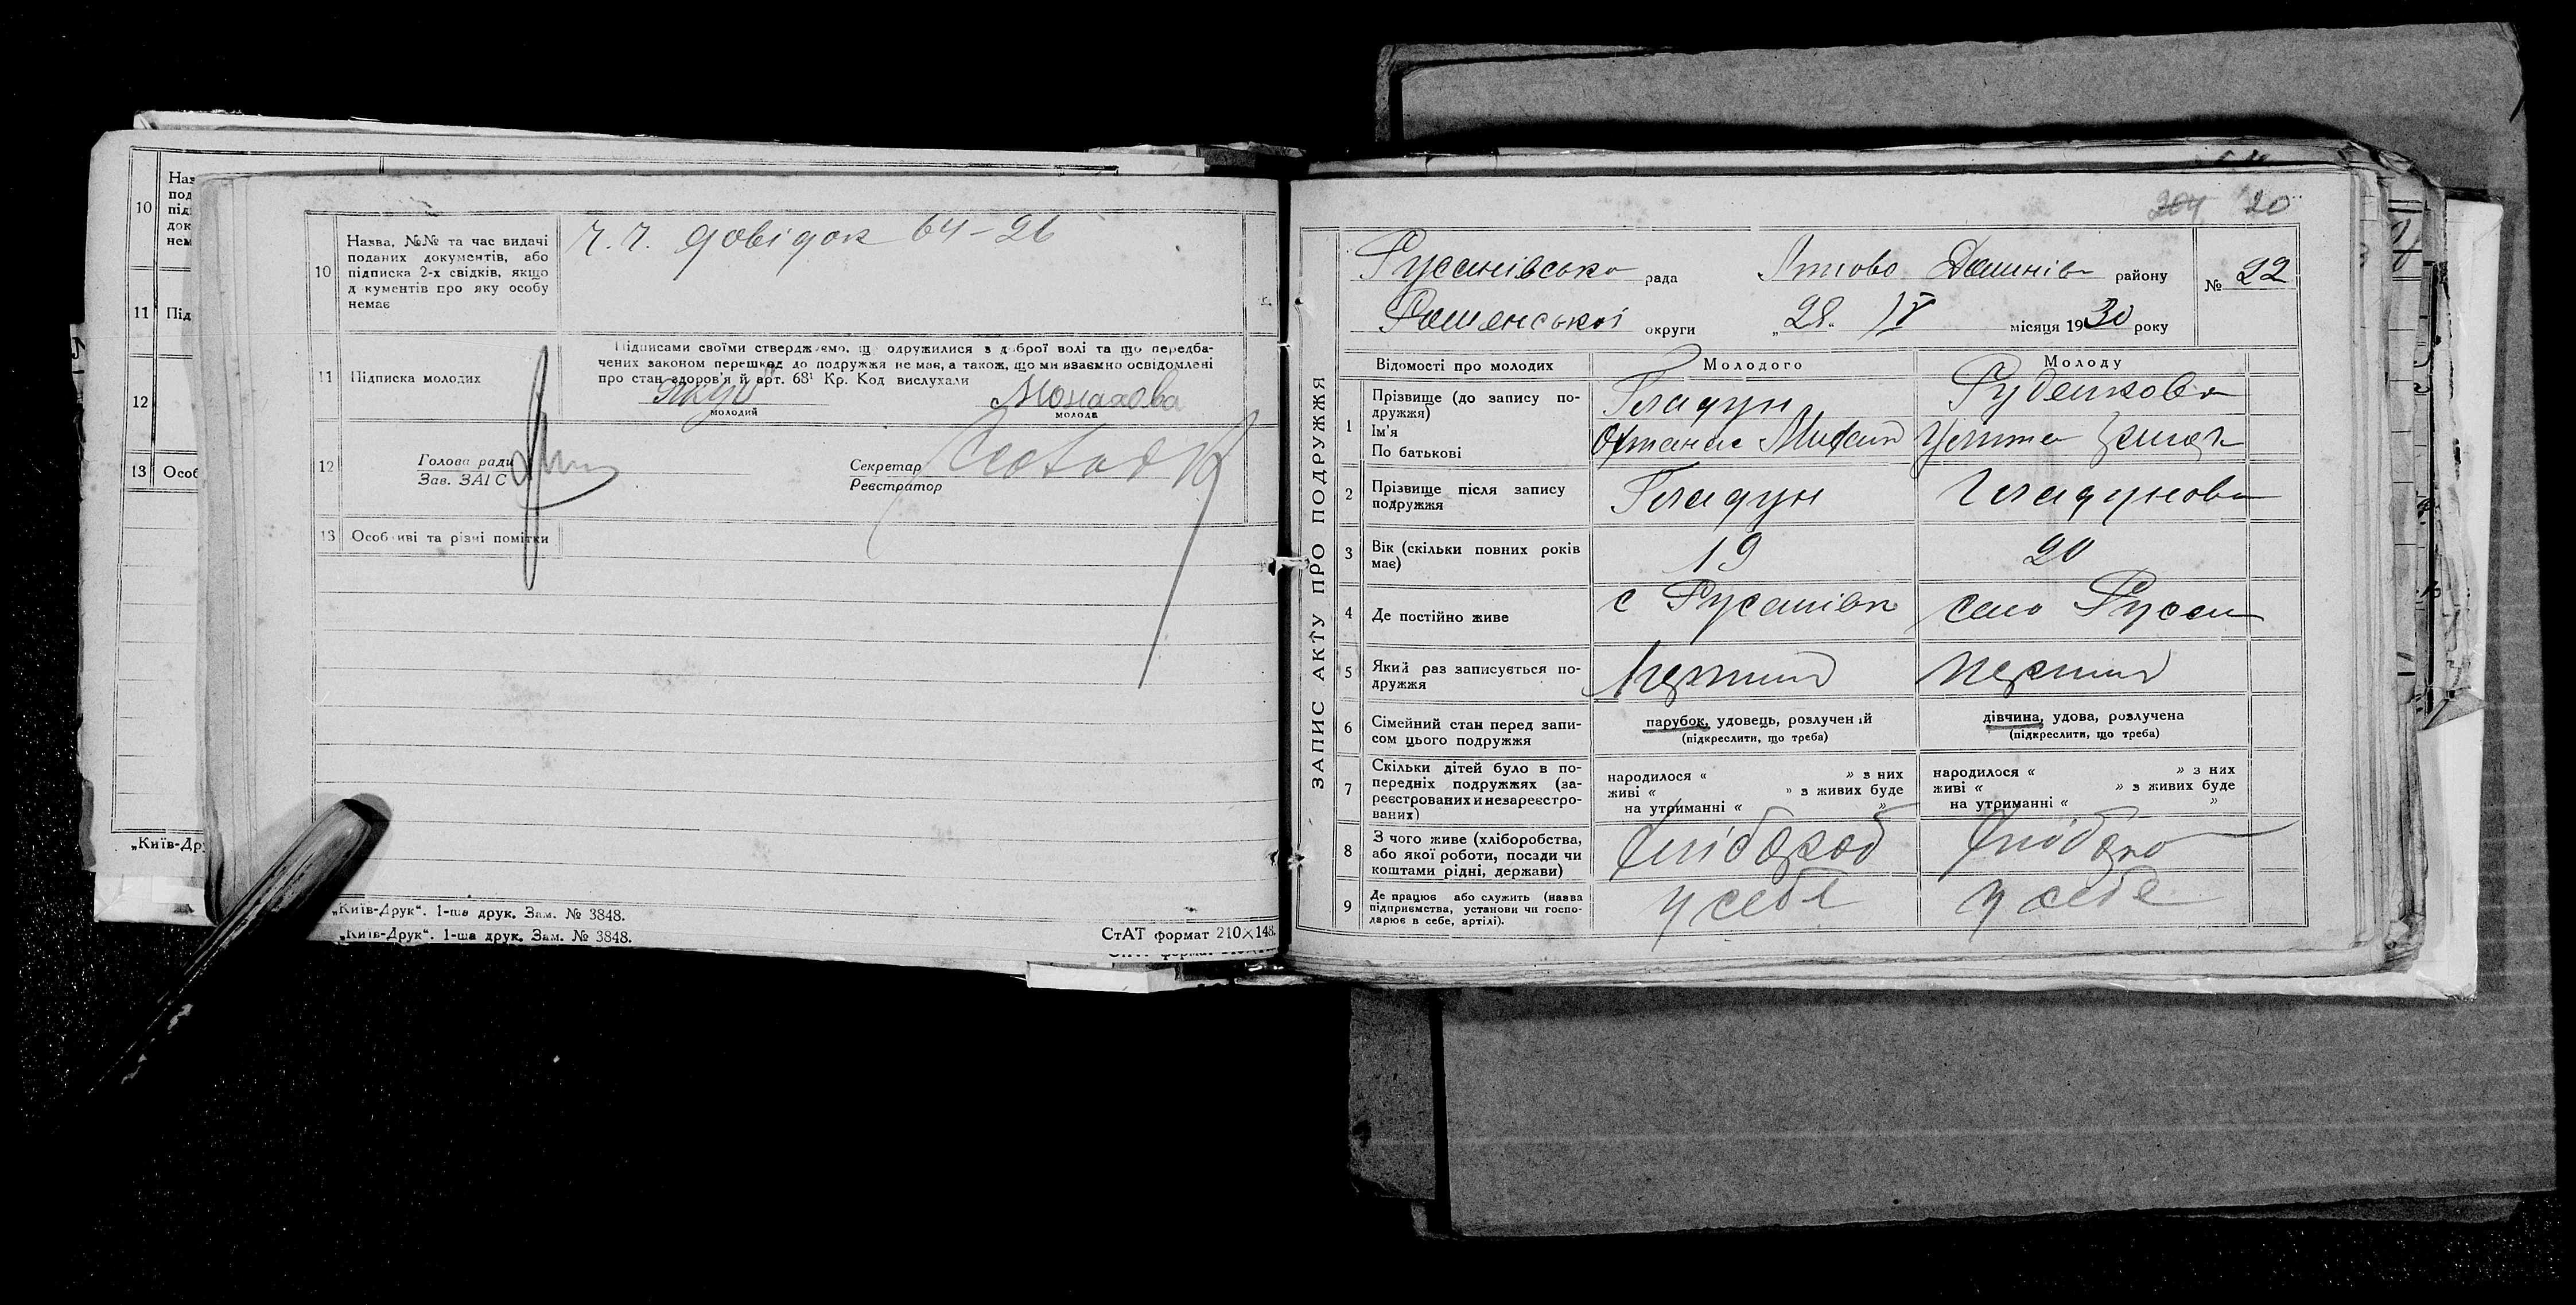 10
Наз
под
під
док
нем
11
Під
12
13
Особ
„Київ-Др
10
Назва, №№ та час видачі
поданих документів, або
підписка 2-х свідків, якщо
д кументів про яку особу
немає
ч. ч. довідок 64-26
11
Підписка молодих
Підписами своїми стверджуємо, що одружилися з доброї волі та що передба-
чених законом перешкод до подружжя не має, а також, що ми взаємно освідомлені
про стан здоров'я й арт. 68¹ Кр. Код вислухали
Монахова
молодий
молода
12
Голова ради
Зав. ЗАГС
Секретар
Реєстратор
13
Особливі та різні помітки
„Київ-Друк“. 1-ша друк. Зам. № 3848.
„Київ-Друк“. 1-ша друк. Зам. № 3848.
СтАТ формат 210×148.
204 20
ЗАПИС АКТУ ПРО ПОДРУЖЖЯ
Русанівська рада
району
№ 22
Роменської округи „28. IV місяця 1930 року
Відомості про молодих
Молодого
Молоду
1
Прізвище (до запису по-
дружжя)
Ім'я
По батькові
Гладун
Руденкова
2
Прізвище після запису
подружжя
Гладун
Гладунова
3
Вік (скільки повних років
має)
19
20
4
Де постійно живе
с Русанівк
село Русан
5
Який раз записується по-
дружжя
перший
перший
6
Сімейний стан перед запи-
сом цього подружжя
парубок, удовець, розлучений
(підкреслити, що треба)
дівчина, удова, розлучена
(підкреслити, що треба)
7
Скільки дітей було в по-
передніх подружжях (за-
реєстрованих и незареєстро-
ваних)
народилося « » з них
живі « » з живих буде
на утриманні « »
народилося « » з них
живі « » з живих буде
на утриманні « »
8
З чого живе (хліборобства,
або якої роботи, посади чи
коштами рідні, держави)
хлібороб
хліборо
9
Де працює або служить (назва
підприємства, установи чи госпо-
дарює в себе, артілі).
у себе
у себе